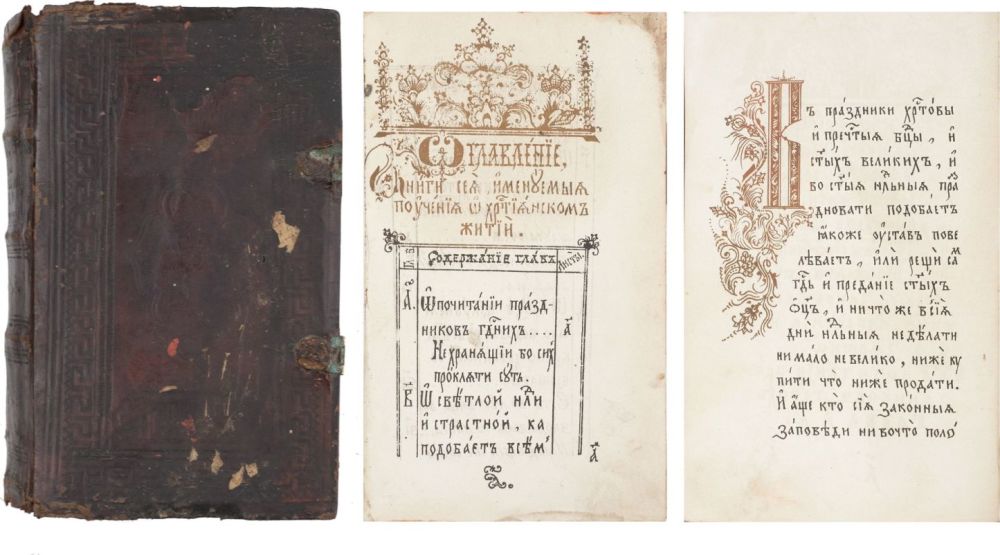 Ѡглавле́нїе,
Кни́ги сея̀ и҆менꙋ́емыя
поꙋче́нїя ѡ҆ хр҇тїя́нском
житїѝ.
Содержа́нїе гла́въ Листы̀
А҃. Ѡ҆ почита́нїи пра́зд-
никовъ гд҇нихъ.... а҃
Не храня́щїи бо си́хъ
про́кляти сꙋ́ть.
В҃ Ѡ҆ свѣ́тлой нд҇ли
и҆ стра́стной, ка
подоба́етъ всѣ́м
а҃
а҃.
Въ пра́здники хр҇то́вы
и҆ пречⷭ҇тыя бц҃ы, и҆
ст҃ы́хъ вели́кихъ, и҆
во ст҃ы́я нд҇льныя пра́
здновати подоба́етъ
ꙗ҆́коже ѹ҆ста́въ пове
лѣва́етъ, и҆лѝ рещѝ са́м
гд҇ь и҆ преда́нїе ст҃ы́хъ
ѻ҆ц҃ъ, и҆ ничто́ же в сїя̀
днѝ нд҇льныя не дѣ́лати
ни ма́ло не вели́ко, нижѐ кꙋ
пи́ти что̀ нижѐ прода́ти.
И҆ а҆́ще кто̀ сїя̀ зако́нныя
за́повѣди ни во что̀ поло́